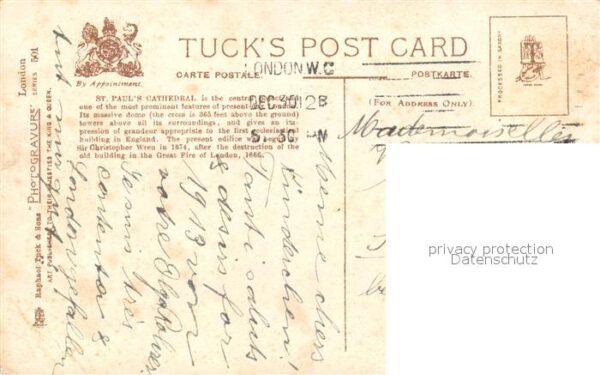 TUCK'S POST CARD
CARTE POSTALE
POSTKARTE.
(FOR ADDRESS ONLY).
By Appointment.
PROCESSED IN SAXONY
LONDON.W.C
DEC 30 12
5.30 PM
ST. PAUL'S CATHEDRAL is the central
one of the most prominent features of present London.
Its massive dome (the cross is 365 feet above the ground)
towers above all its surroundings, and gives an im-
pression of grandeur appropriate to the first ecclesiastical
building in England. The present edifice was
Sir Christopher Wren in 1674, after the destruction of the
old building in the Great Fire of London, 1666.
Raphael Tuck & Sons "PHOTOGRAVURE" London SERIES 501
ART PUBLISHERS TO THEIR MAJESTIES THE KING & QUEEN.
Mademoiselles
Meine
Kinderchen!
Tanti saluts
& desirs for
1913 von
votre
très
contenta &
London gefallen
tut
privacy protection
Datenschutz